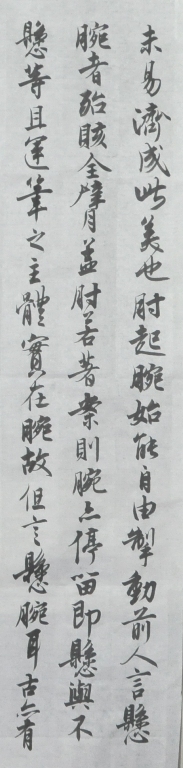 未易濟成此美也肘起腕始能自由掣動前人言懸
腕者殆賅全臂盖肘若著案則腕亦停留即懸與不
懸等且運筆之主體實在腕故但言懸腕耳古亦有